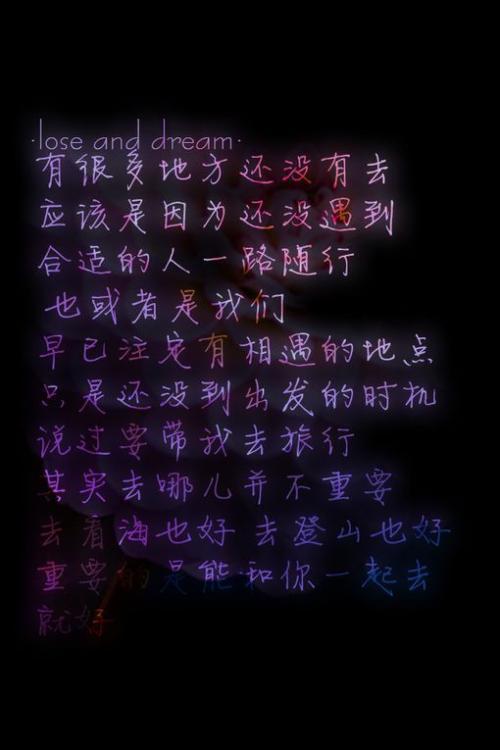 ·lose and dream·
有很多地方还没有去
应该是因为还没遇到
合适的人一路随行
也或者是我们
早已注定有相遇的地点
只是还没到出发的时机
说过要带我去旅行
其实去哪儿并不重要
去看海也好 去登山也好
重要的是能·和你一起去
就好